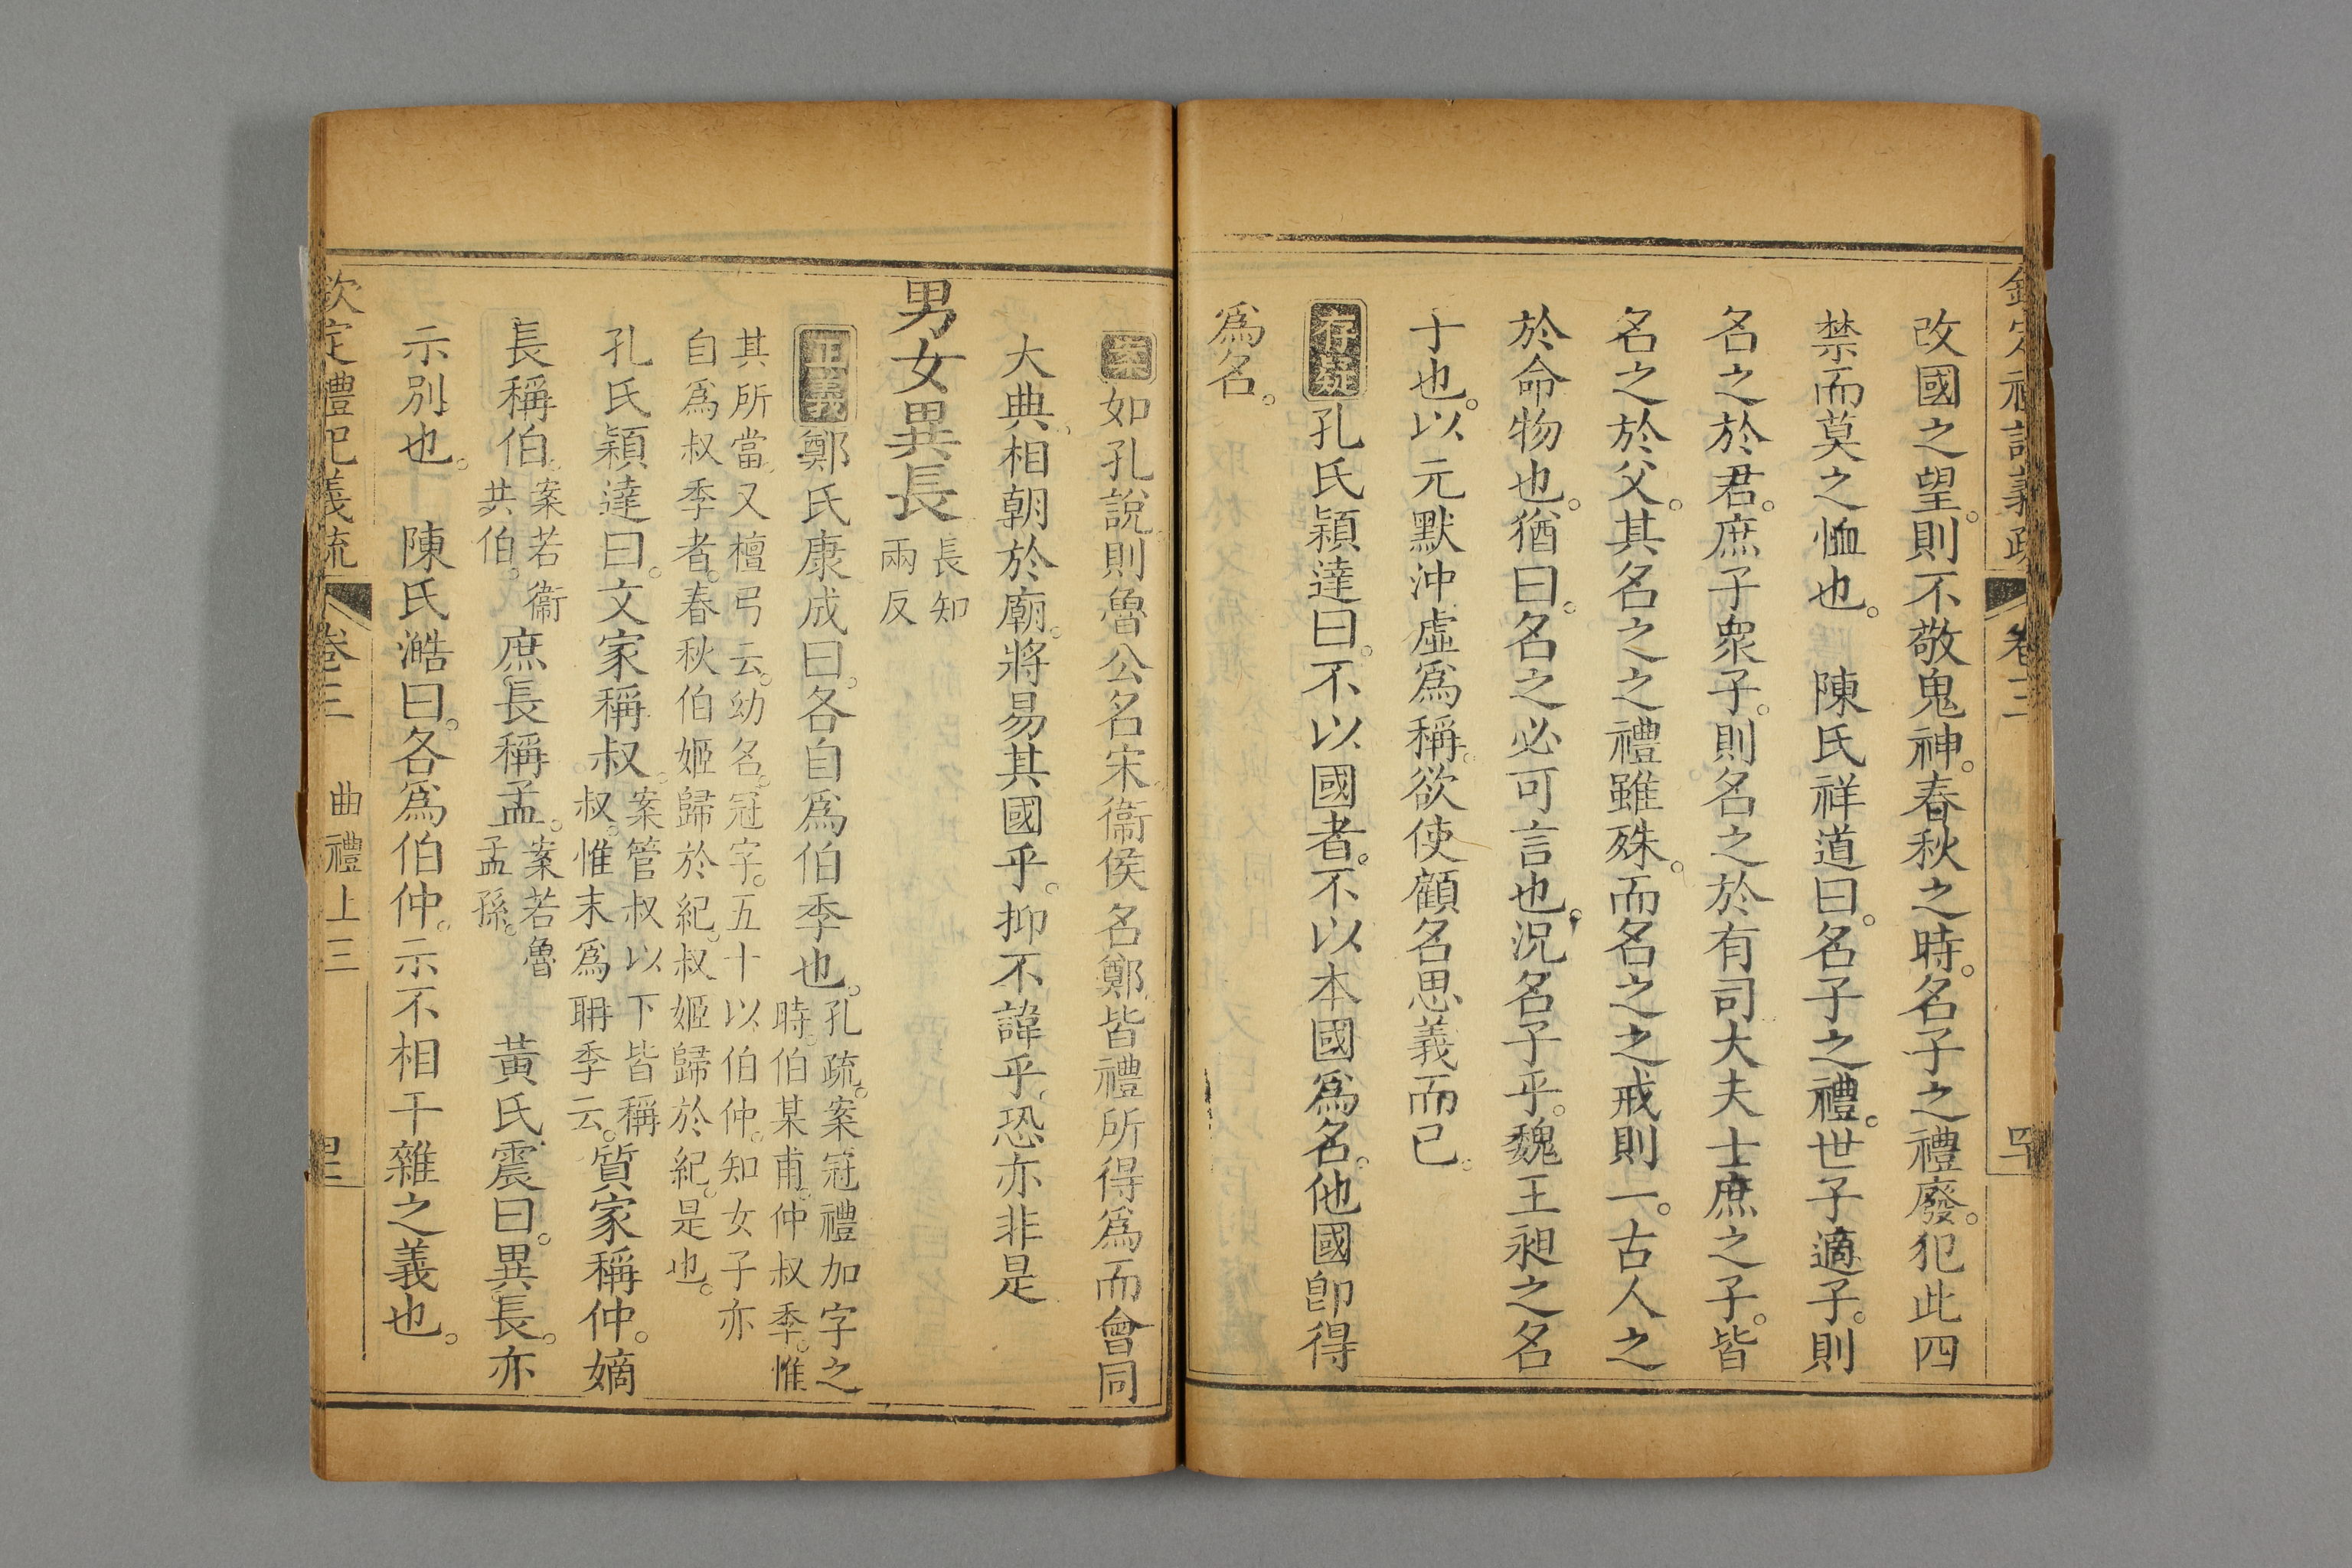 欽定禮記義疏 卷三
改國之望。則不敬鬼神。春秋之時。名子之禮廢。犯此四
禁而莫之恤也。 陳氏祥道曰。名子之禮。世子適子。則
名之於君。庶子衆子。則名之於有司大夫士庶之子。皆
名之於父。其名之之禮雖殊。而名之之戒則一。古人之
於命物也。猶曰。名之必可言也。況名子乎。魏王昶之名
子也。以元默沖虛爲稱。欲使顧名思義而已。
存疑 孔氏穎達曰。不以國者。不以本國爲名。他國卽得
爲名。
案 如孔說。則魯公名宋。衞侯名鄭。皆禮所得爲。而會同
大典。相朝於廟。將易其國乎。抑不諱乎。恐亦非是
男女異長 長知
兩反
正義 鄭氏康成曰。各自爲伯季也。 孔疏。案冠禮加字之
時。伯某甫。仲叔季。惟
其所當。又檀弓云。幼名。冠字。五十以伯仲。知女子亦
自爲叔季者。春秋伯姬歸於紀。叔姬歸於紀。是也。
孔氏穎達曰。文家稱叔。 案管叔以下皆稱
叔。惟末爲耼季云。 質家稱仲。嫡
長稱伯。 案若衞
共伯。 庶長稱孟。 案若魯
孟孫。 黃氏震曰。異長。亦
示別也。 陳氏澔曰。各爲伯仲。示不相干雜之義也。
欽定禮記義疏 卷三 曲禮上三